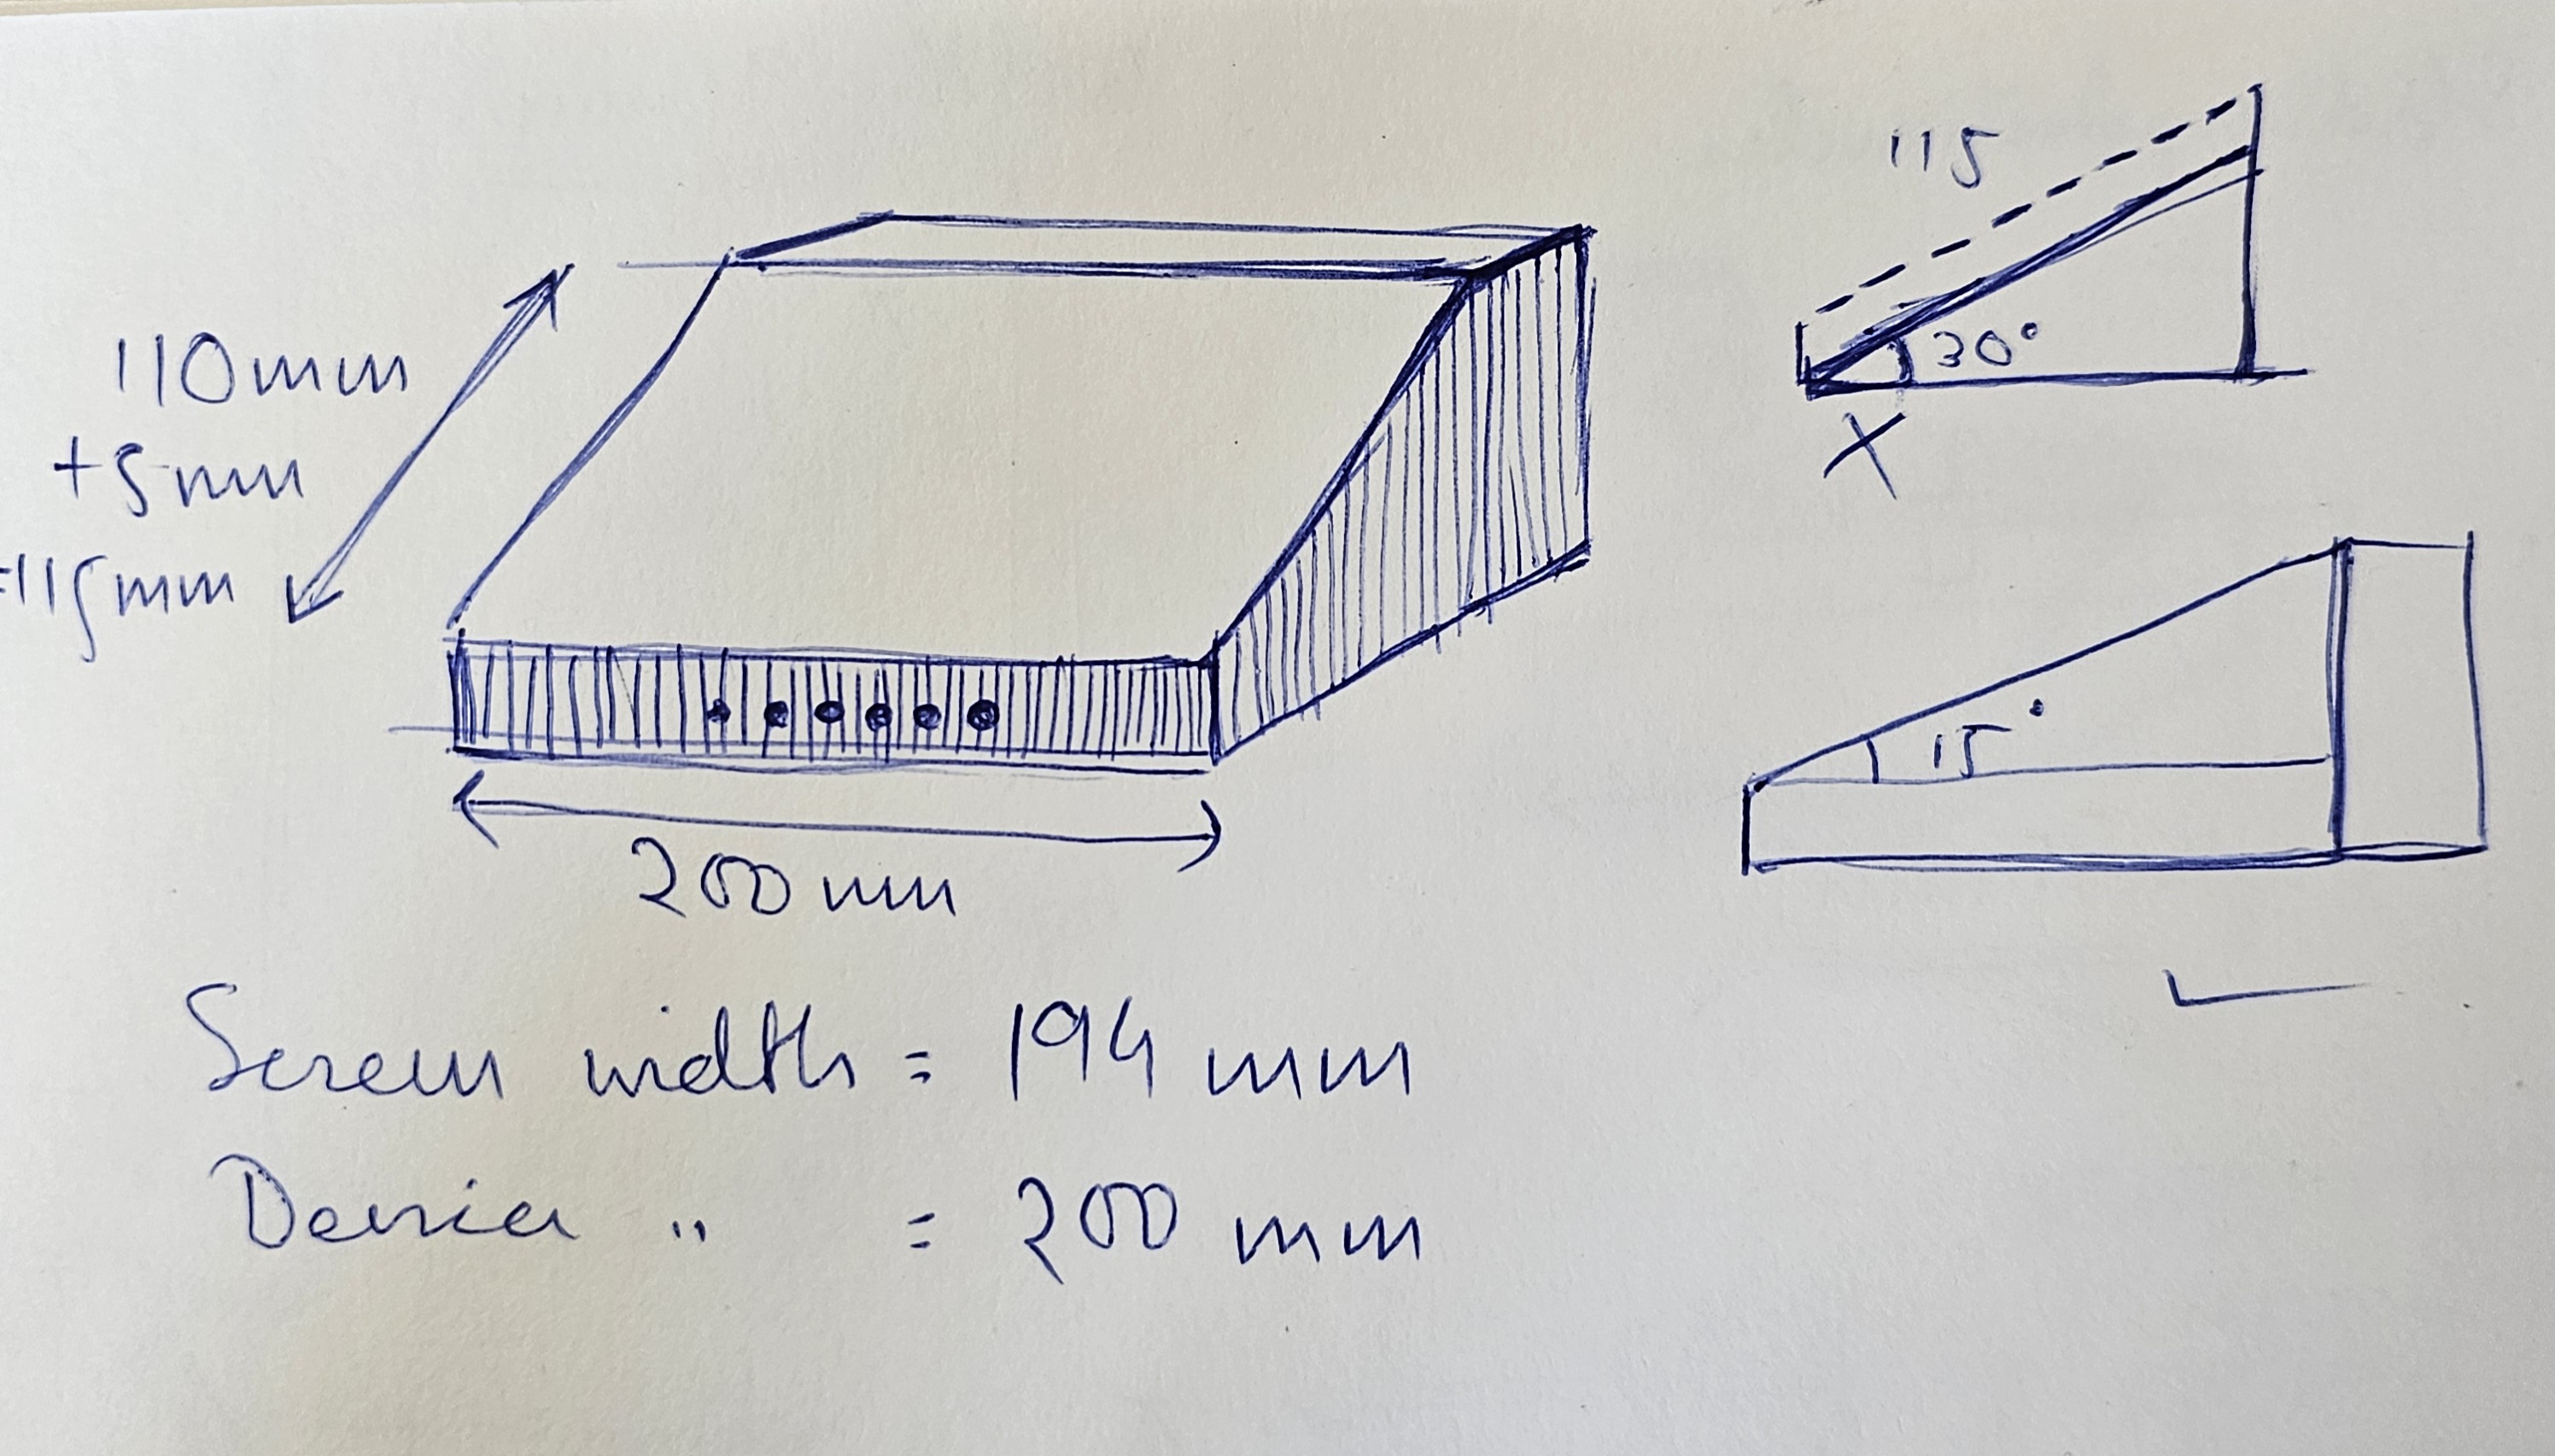 110mm
+5mm
=115mm
200mm
115
30°
X
15°
Screen width = 194 mm
Device " = 200 mm